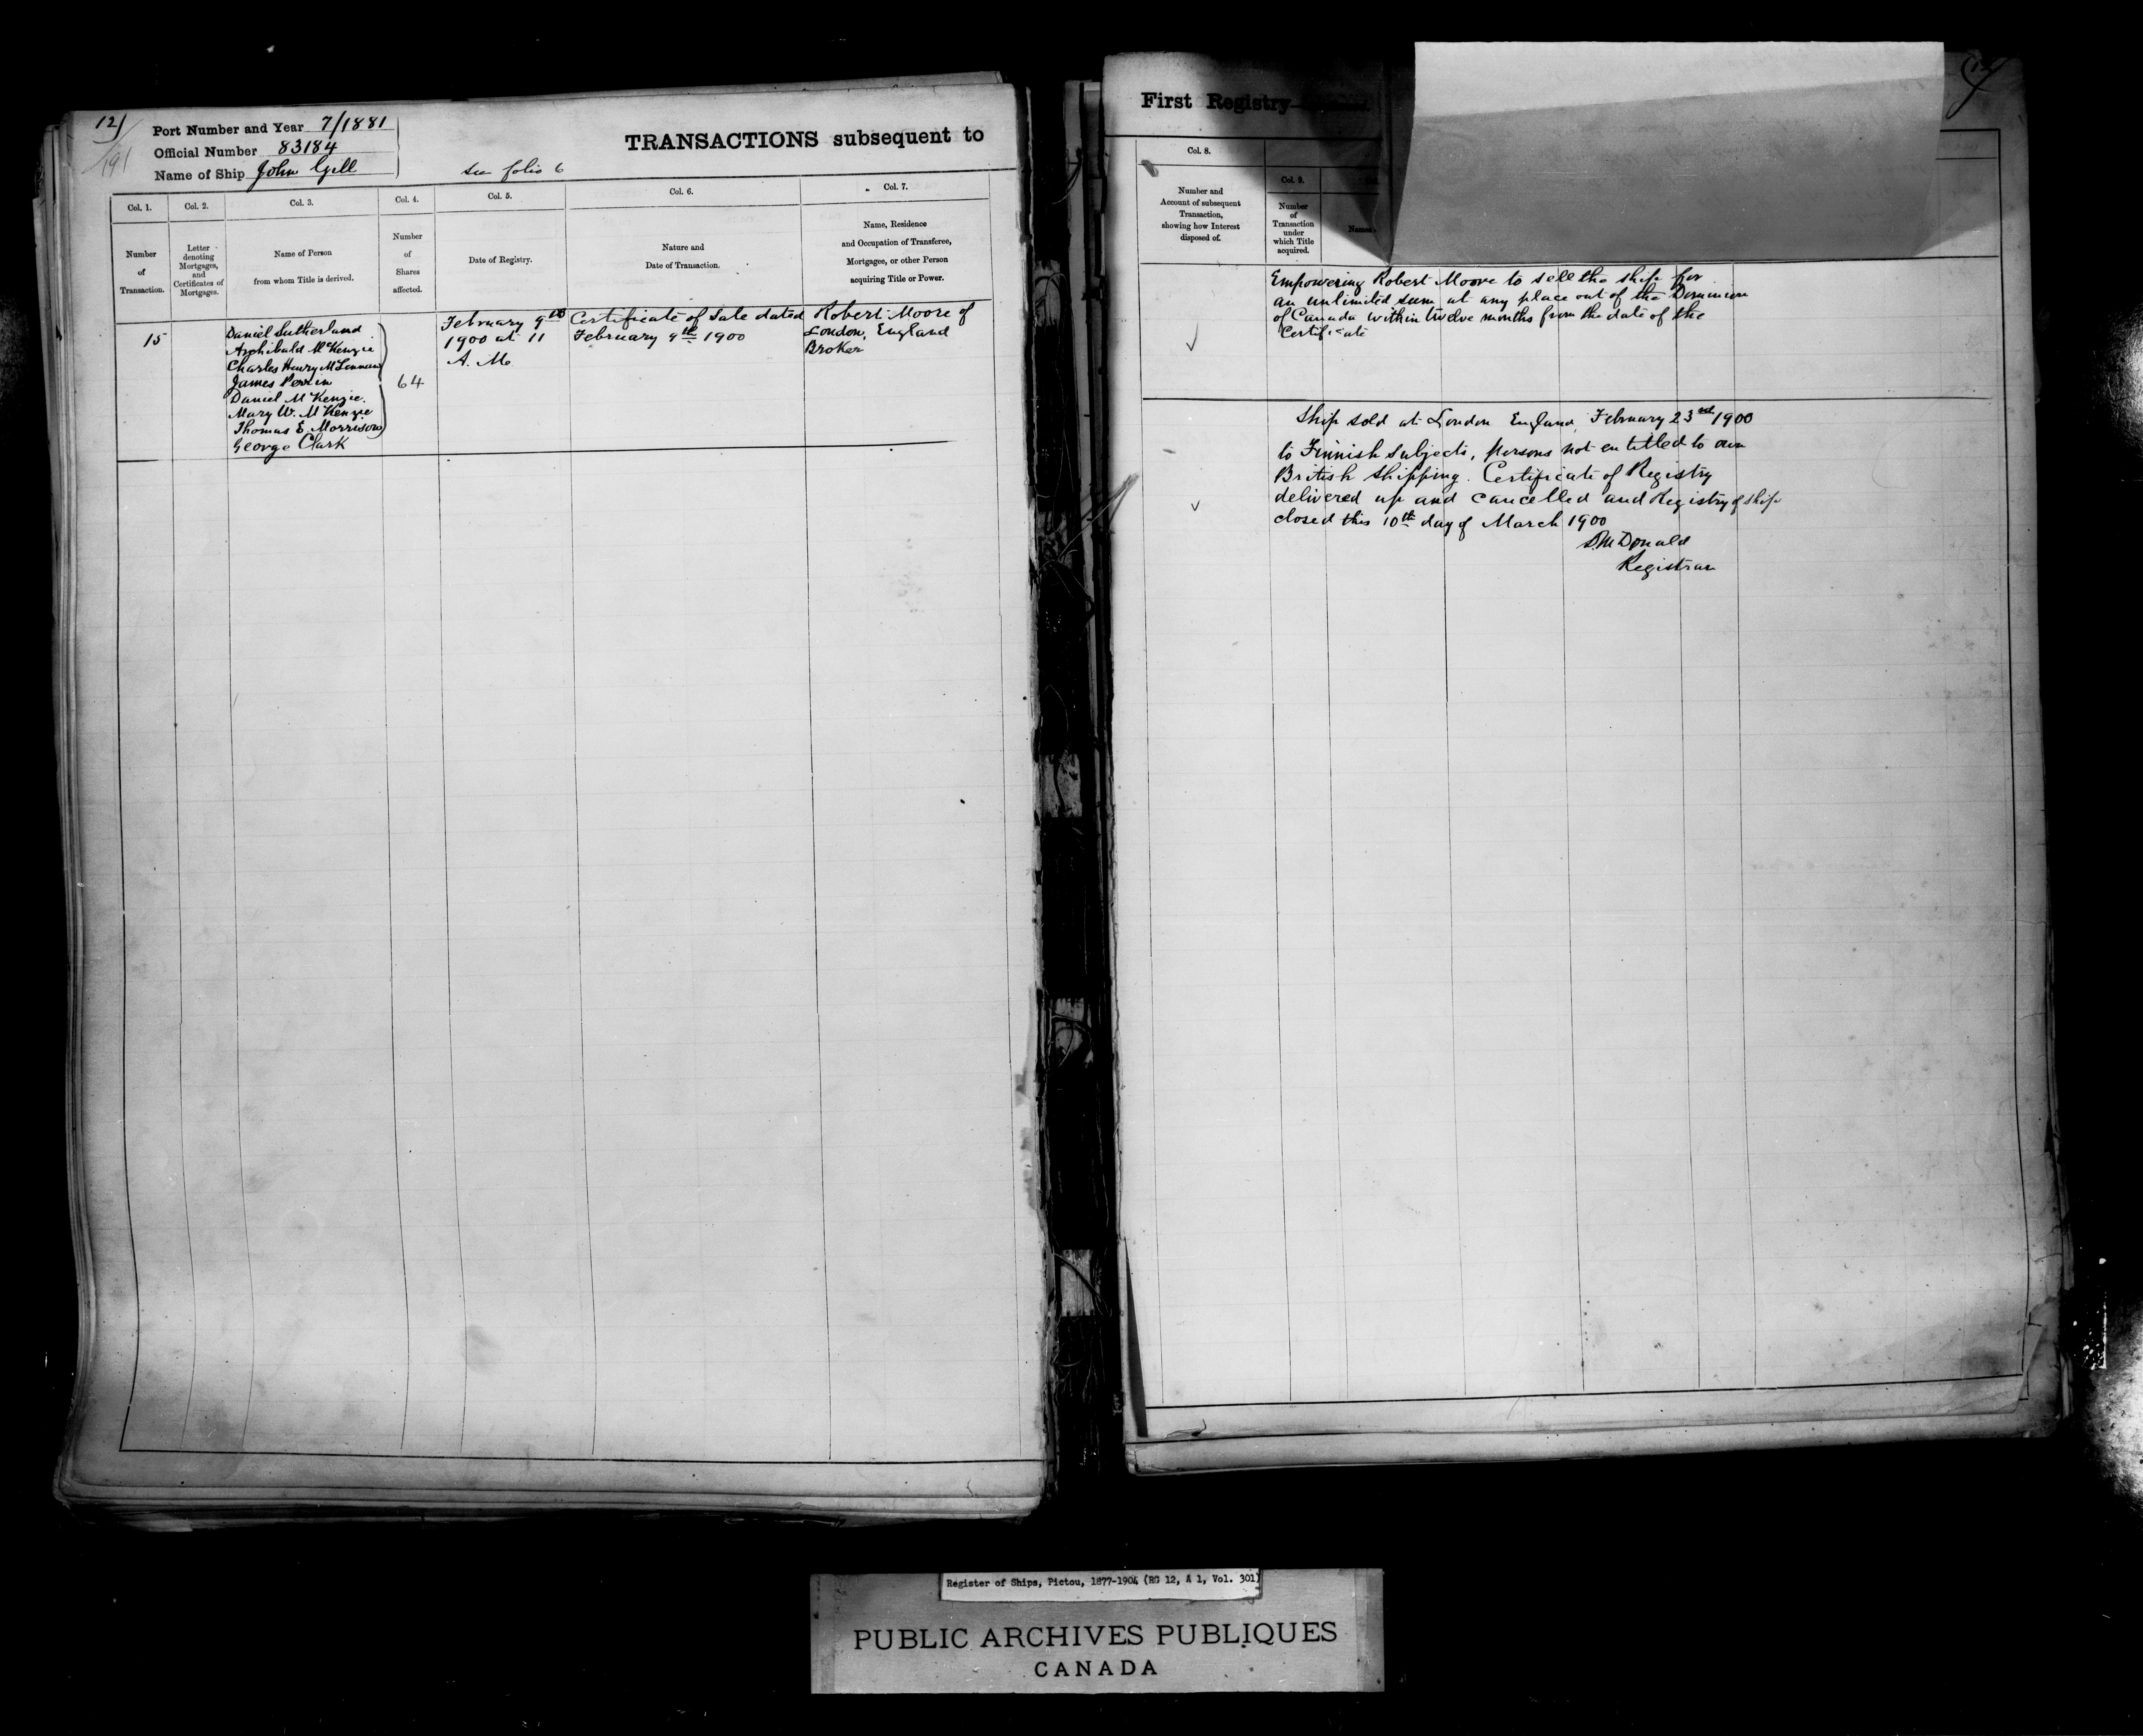 12)
191
Port Number and Year 7/1881
Official Number 83184
Name of Ship John Gill
see folio 6
TRANSACTIONS subsequent to
Col. 1.
Col. 2.
Col. 3.
Col. 4.
Col. 5.
Col. 6.
Col. 7.
Number
of
Transaction.
Letter
denoting
Mortgages,
and
Certificates of
Mortgages.
Name of Person
from whom Title is derived.
Number
of
Shares
affected.
Date of Registry.
Nature and
Date of Transaction.
Name, Residence
and Occupation of Transferee,
Mortgagee, or other Person
acquiring Title or Power.
15
Daniel Sutherland
Archibald McKenzie
Charles Henry McLennan
James Perrin
Daniel McKenzie.
Mary W. McKenzie
Thomas E. Morrison
George Clark
64
February 9th
1900 at 11
A. M.
Certificate of Sale dated
February 9th 1900
Robert Moore of
London, England
Broker
First Registry
Col. 8.
Number and
Account of subsequent
Transaction,
showing how Interest
disposed of.
Col. 9.
Number
of
Transaction
under
which Title
acquired.
Names
Empowering Robert Moore to sell the ship for
an unlimited sum at any place out of the Dominion
of Canada within twelve months from the date of the
Certificate
Ship sold at London England, February 23rd 1900
to Finnish Subjects, persons not entitled to own
British Shipping. Certificate of Registry
delivered up and cancelled and Registry of ship
closed this 10th day of March 1900
D. McDonald
Registrar
Register of Ships, Pictou, 1877-1904 (RG 12, A 1, Vol. 301)
PUBLIC ARCHIVES PUBLIQUES
CANADA